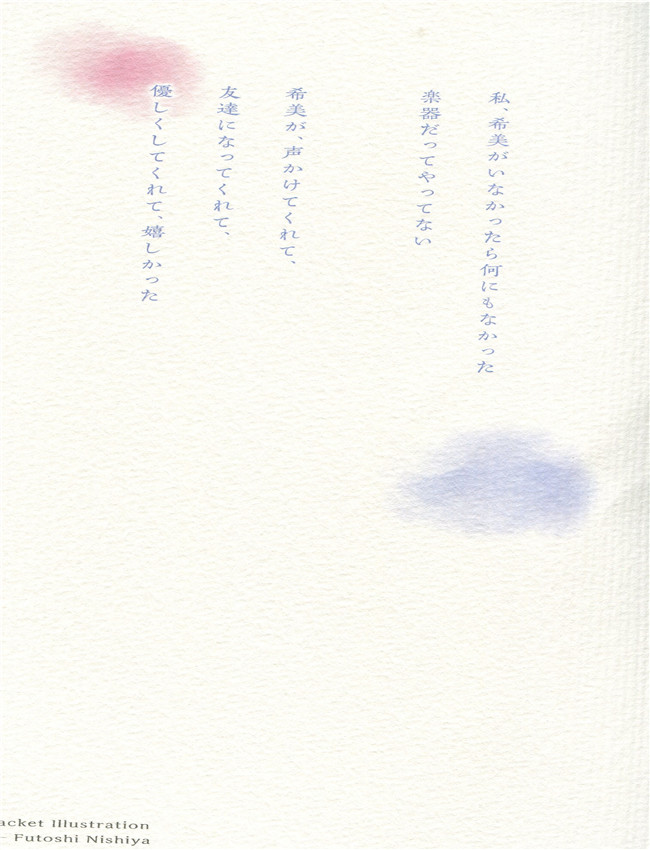 私、希美がいなかったら何にもなかった
楽器だってやってない
希美が、声かけてくれて、
友達になってくれて、
優しくしてくれて、嬉しかった
acket Illustration
– Futoshi Nishiya